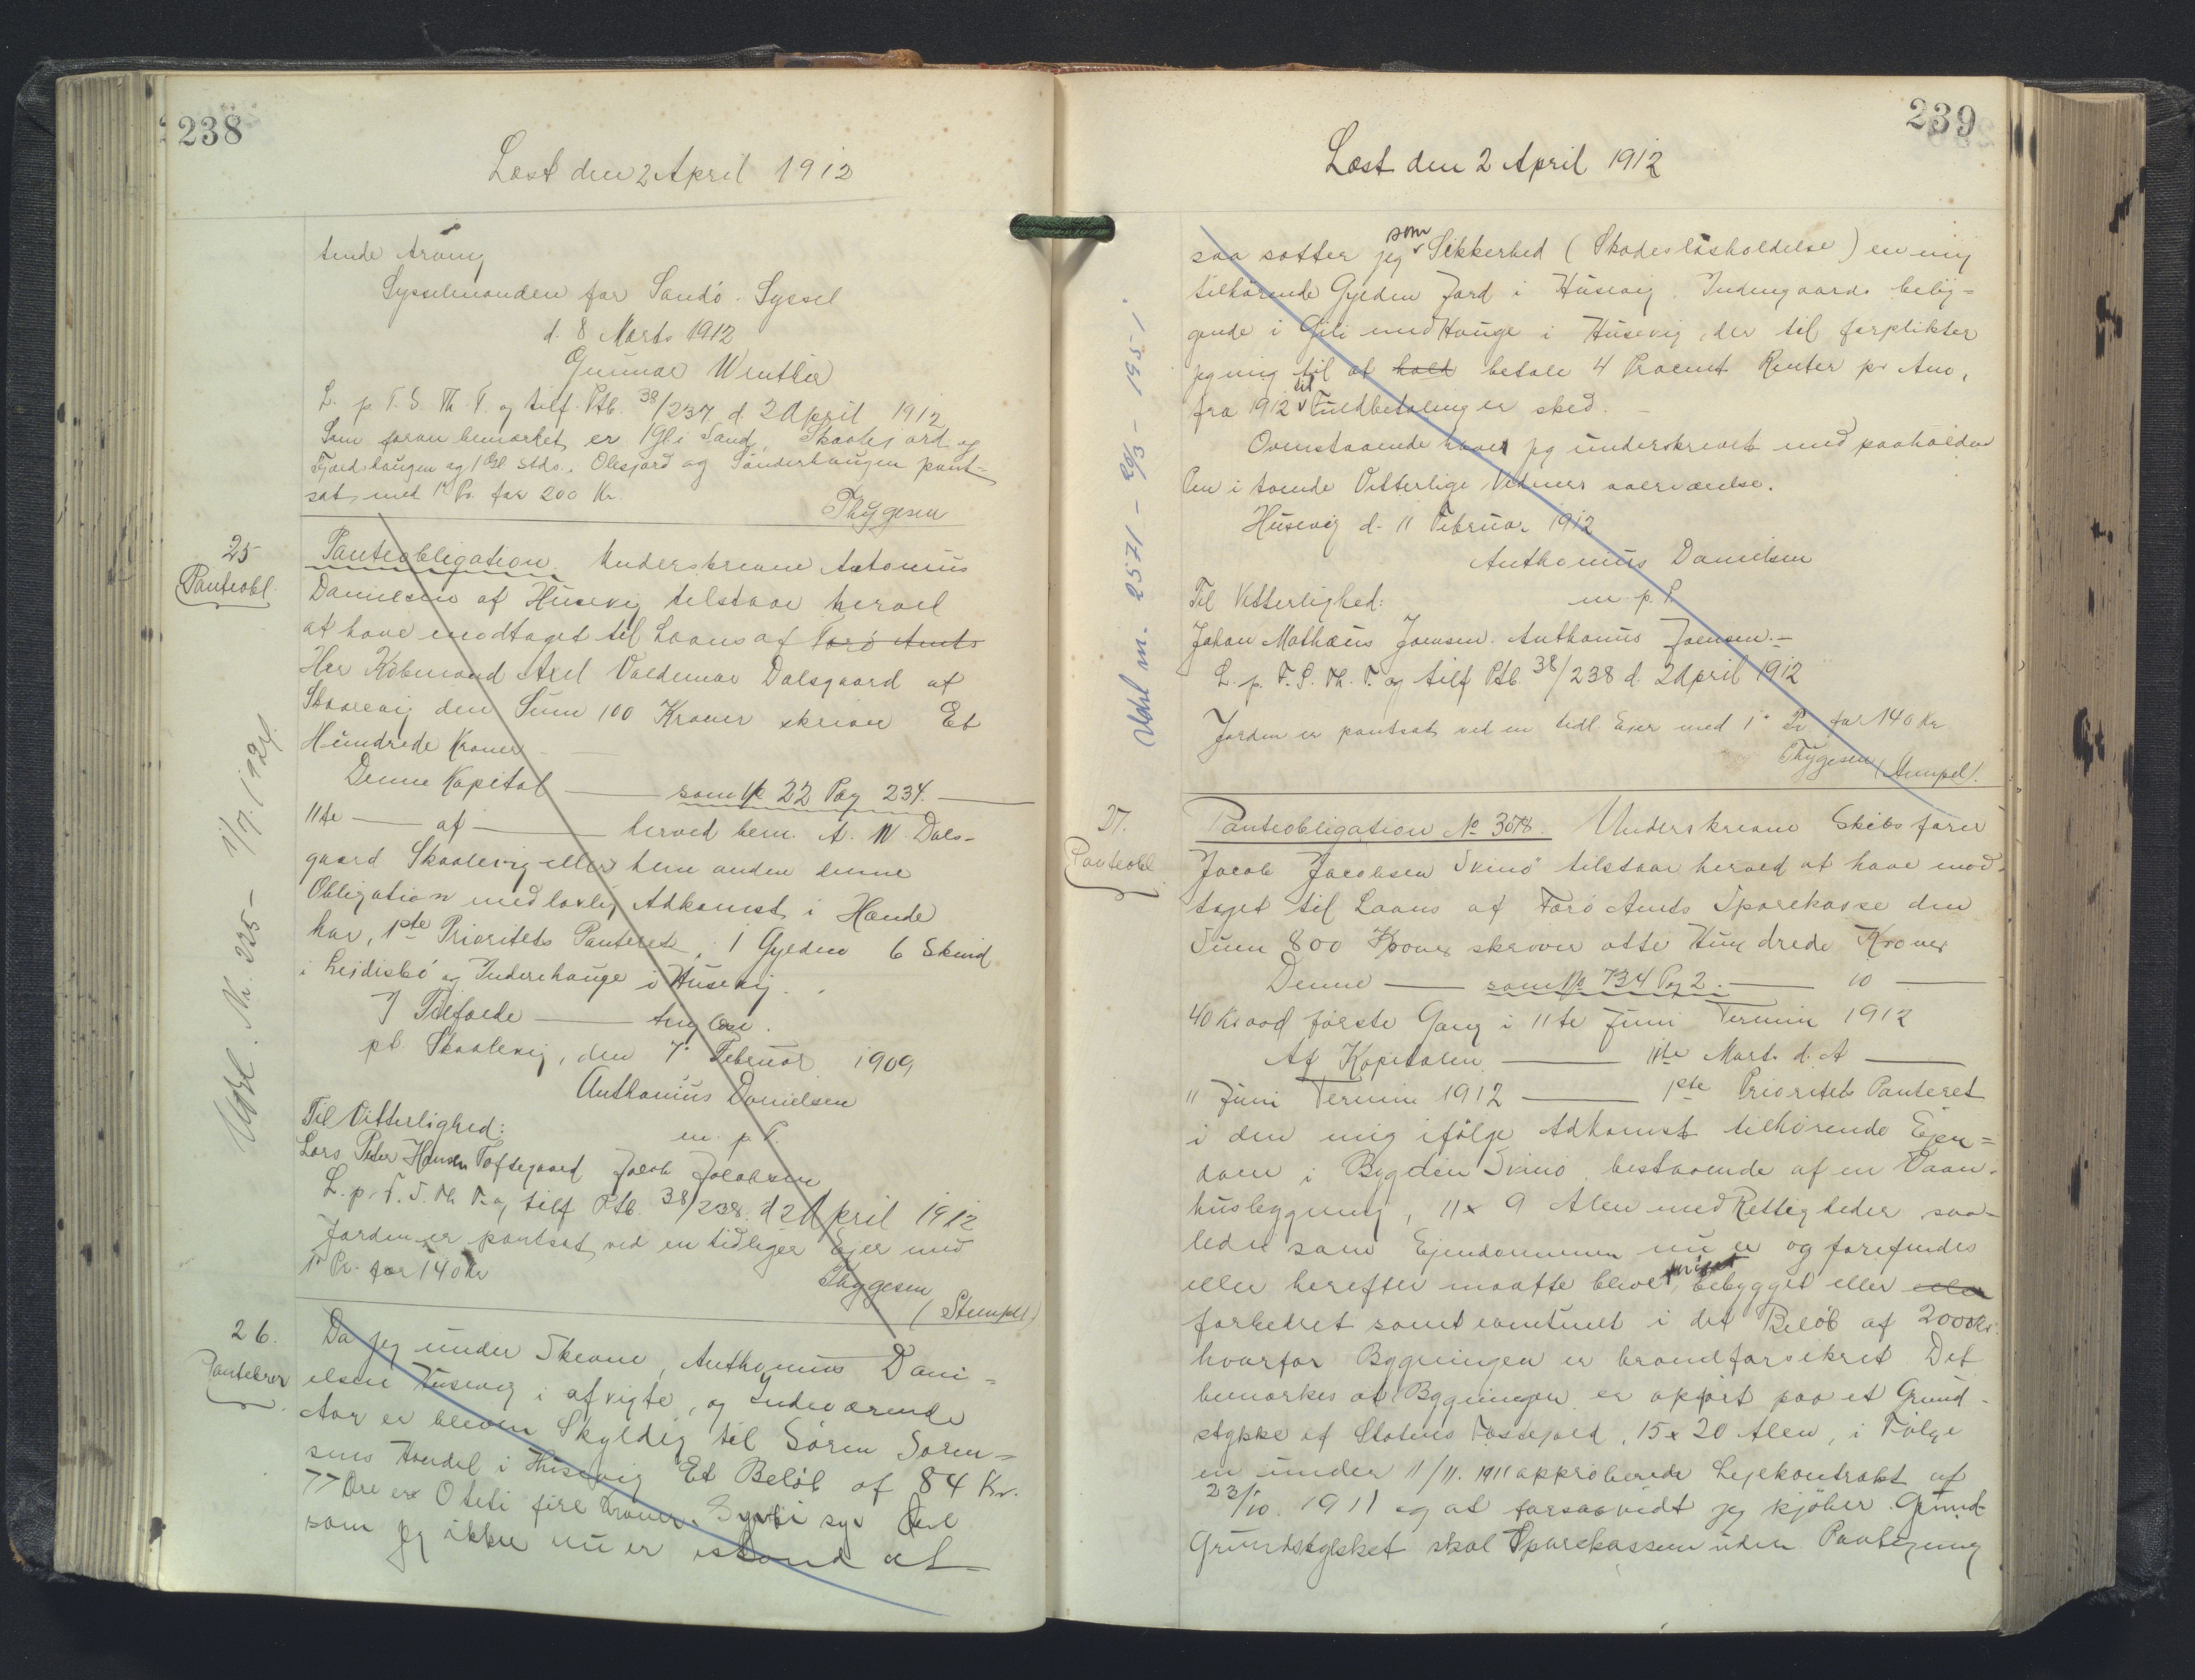 238
Læst den 2 April 1912
tende Arving
Sysselmanden for Sandö Syssel
d. 8 Marts 1912
Gunnar Wenthin
L. p. F. S. Th. T. og tilf. Ptb. 38/237 d. 2 April 1912
Som foran bemærket er 1 Gl i Sand, Skaalejord og
og 1 Gl stds. Olesjord og Sönderhaugen pant-
sat med 1' Pr. for 200 Kr.
Thygesen
25
Panteobl.
Panteobligation. Underskrevne Antonius
Danielsen af Husevig tilstaar herved
at have modtaget til Laans af Færö Amts
Her Köbmand Axel Valdemar Dalsgaard af
Skaalevig den Sum 100 Kroner skriver Et
Hundrede Kroner
Denne Kapital — som No 22 Pag 234. —
11te — af — herved bem. A. W. Dals-
gaard Skaalevig eller hvem anden denne
Obligation med lovlig Adkomst i Hænde
har, 1ste Prioritets Panteret i 1 Gylden 6 Skind
i Leidisbö og Inderehauge i Husevig.
I Tilfælde — tinglæse.
pt. Skaalevig, den 7' Februar 1909
Anthonius Danielsen
m. p. P.
Til Vitterlighed:
Lars Peter Hansen Toftegaard Jacob Jacobsen
L. p. F. S. Th. T. og tilf Ptb. 38/238. d 2 April 1912
Jorden er pantsat ved en tidligere Ejer med
1' Pr. for 140 Kr
Thygesen
(Stempel)
Udsl. Nr. 225 - 1/7. 1924.
26.
Pantebrev
Da jeg under Skevne, Anthonius Dani-
elsen Husevig i afvigte, og Indeværende
Aar er bleven Skyldig til Sören Sören-
sens Handel i Husevig Et Belöb af 84 Kr.
77 Öre er Otteti fire Kroner Sytti syv Öre
som jeg ikke nu er istand at
239
Læst den 2 April 1912
saa sætter jeg som Sikkerhed (Skadeslösholdelse) en mig
tilhörende Gylden Jord i Husevig. Indengaards belig-
gende i Gili med Hauge i Husevig, der til forplikter
jeg mig til at hold betale 4 Procent Renter pr Ano,
fra 1912 til Fuldbetaling er sked.
Ovenstaaende haver jeg underskrevet med paaholden
Pen i tvende Vitterlige Vidners overværelse.
Husevig d. 11 Februar 1912
Anthonius Danielsen
m. p. P.
Til Vitterlighed:
Johan Mathæus Joensen. Anthonius Joensen.
L. p. F. S. Th. T. og tilf Ptb. 38/238 d. 2 April 1912
Jorden er pantsat ved en tidl Ejer med 1' Pr for 140 Kr
Thygesen (Stempel).
Udsl m. 2571 - 20/3 - 1951.
27.
Panteobl
Panteobligation No 3078. Underskrevne Skibsförer
Jacob Jacobsen Skinö tilstaar herved at have mod-
taget til Laans af Færö Amts Sparekasse den
Sum 800 Kroner skriver otte Hundrede Kroner
Denne — som No 734 Pag 2. — 10 —
40 Kr ved förste Gang i 11te Juni Termin 1912
Af Kapitalen — 11te Marts d. A —
11 Juni Termin 1912 — 1ste Prioritets Panteret
i den mig ifölge Adkomst tilhörende Ejen-
dom i Bygden Skinö bestaaende af en Vaan-
husbygning, 11 x 9 Alen med Rettigheder saa-
ledes som Ejendommen nu er og forefindes
eller herefter maatte blive bebygget eller eller
forbedret samt eventuelt i det Belöb af 2000 Kr.
hvorfor Bygningen er brandforsikret. Det
bemærkes at Bygningen er opfört paa et Grund-
stykke af Statens Fæstejord, 15 x 20 Alen, i Fölge
en under 11/11. 1911 approberede Lejekontrakt af
23/10. 1911 og at forsaavidt jeg kjöber Grund-
Grundstykket skal Sparekassen uden Pantegning